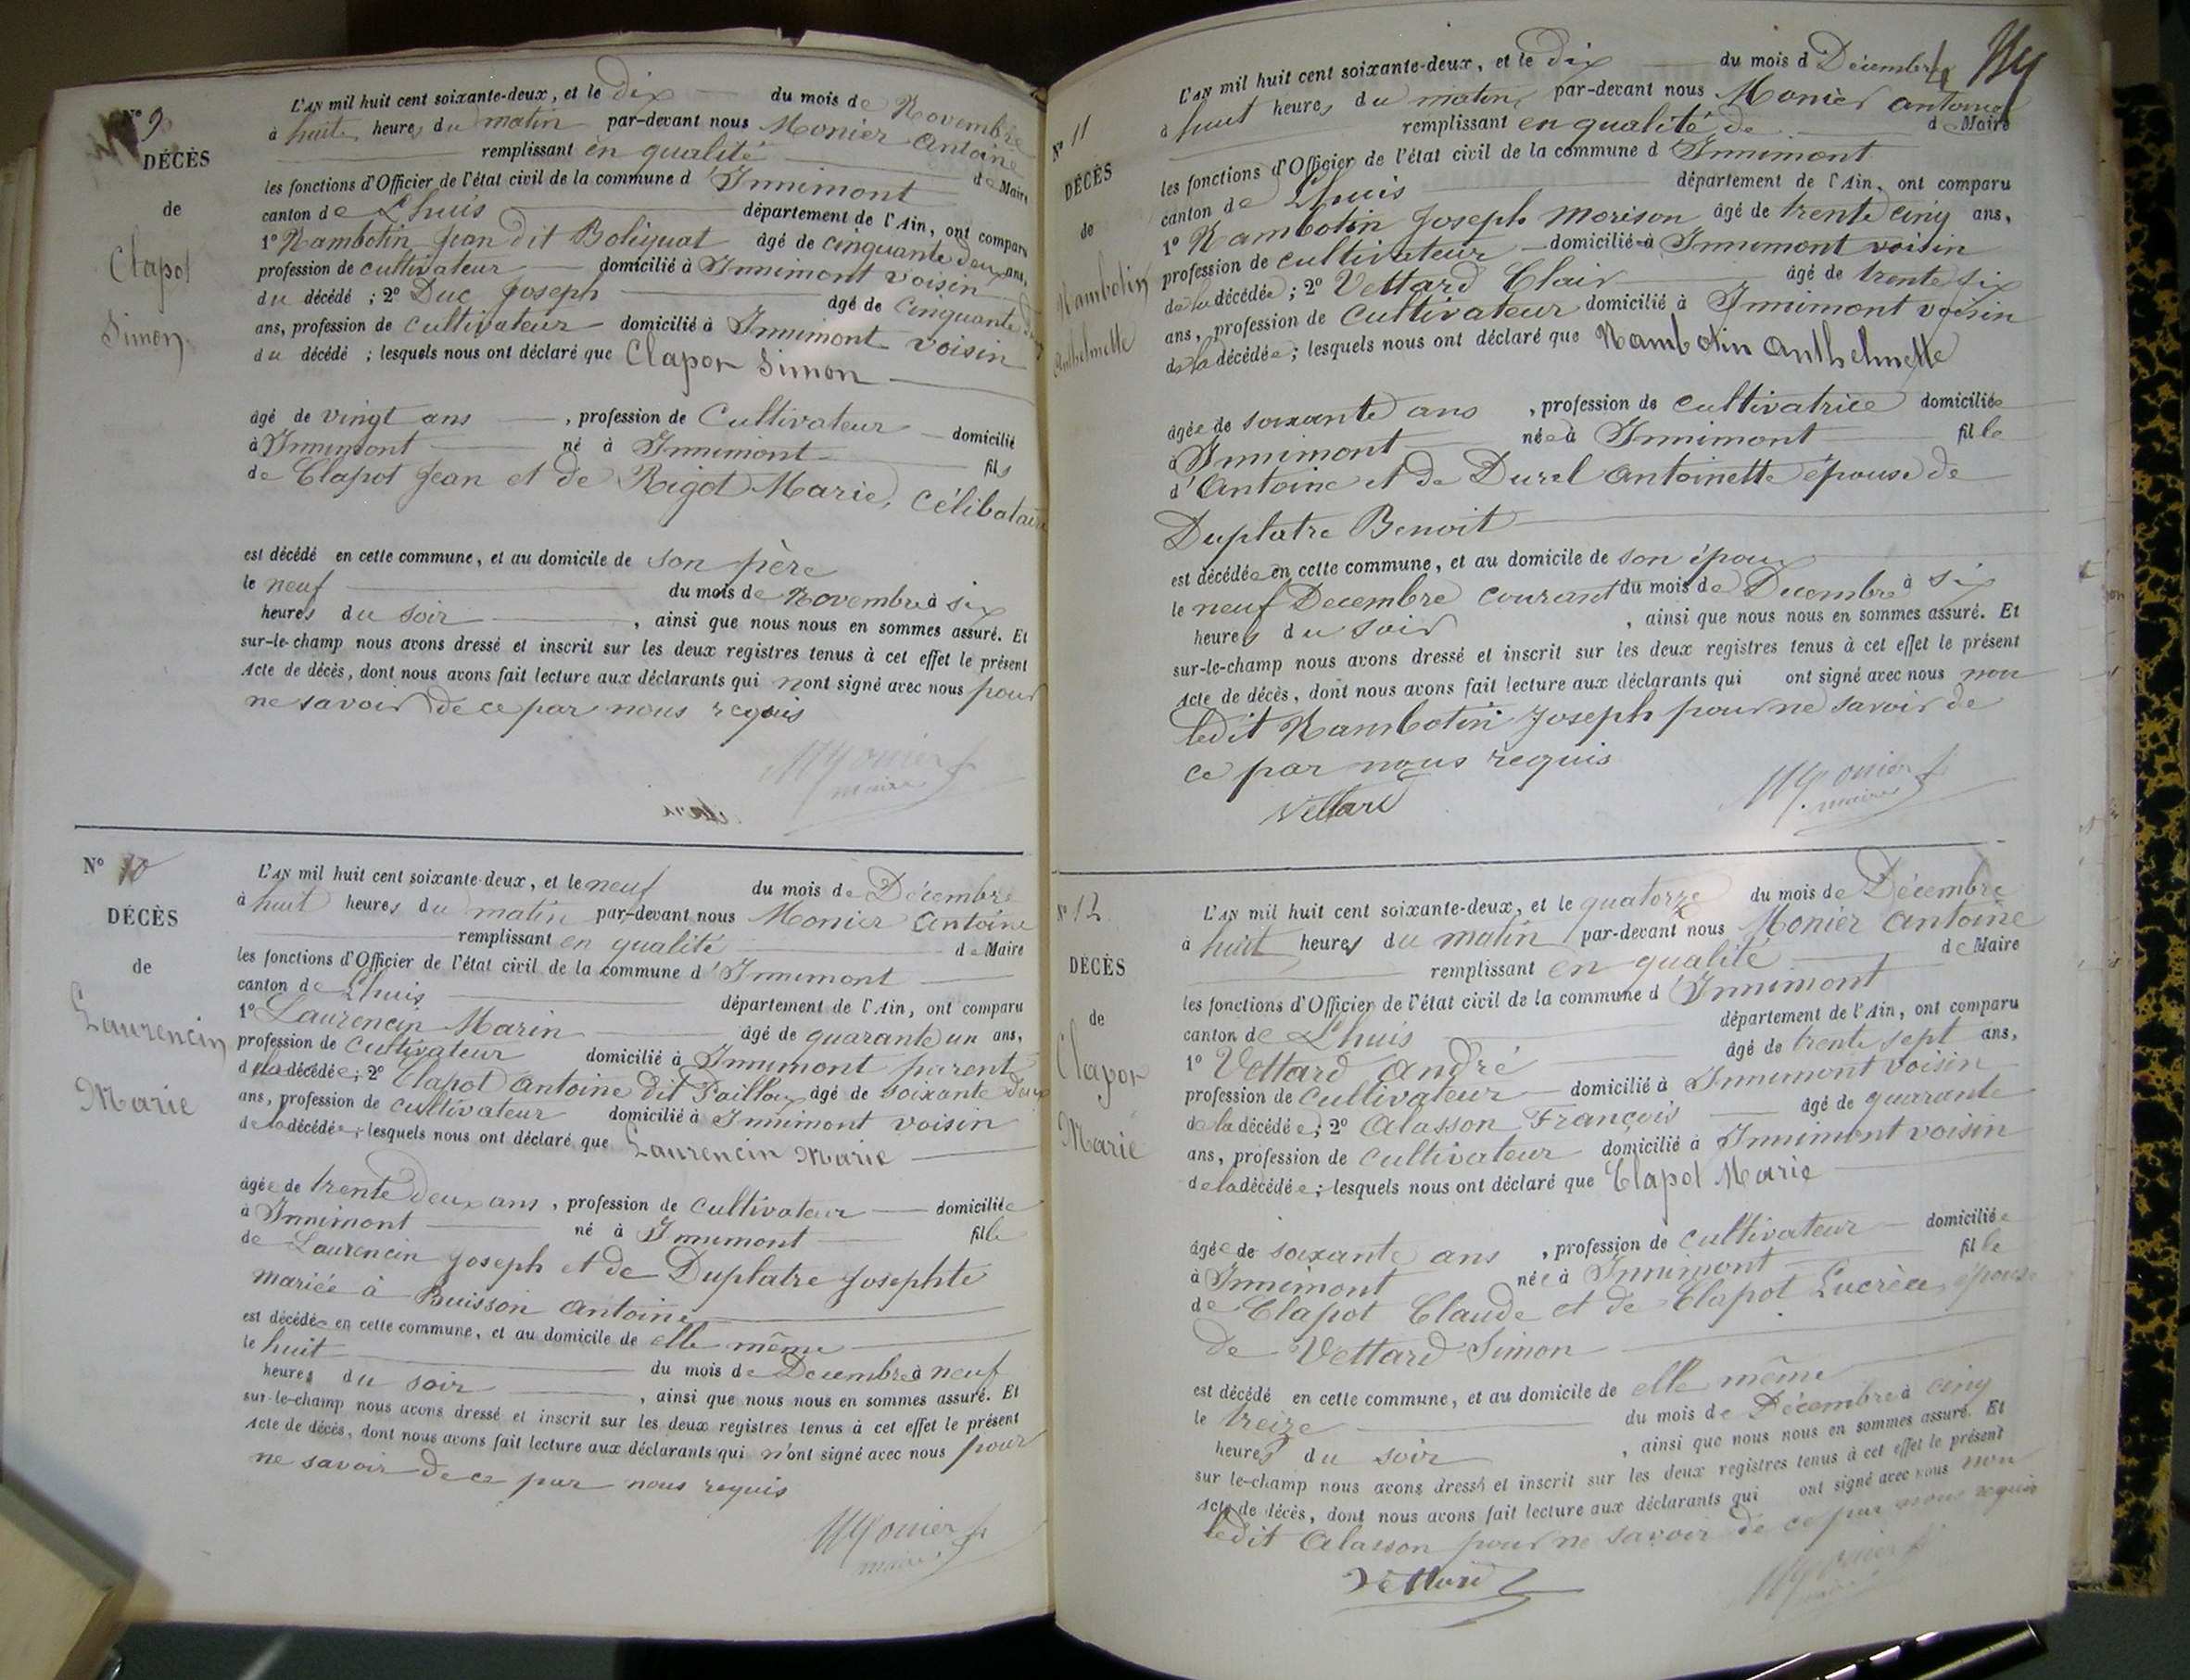 N° 9
DÉCÈS
de
Clapot
Simon
L'AN mil huit cent soixante-deux, et le dix du mois de Novembre
à huit heures du matin par-devant nous Monier Antoine
remplissant en qualité de Maire
les fonctions d'Officier de l'état civil de la commune d'Innimont
canton de Lhuis département de l'Ain, ont comparu
1° Rambotin Jean dit Boliquat âgé de cinquante deux ans,
profession de cultivateur domicilié à Innimont voisin
du décédé ; 2° Duc Joseph âgé de cinquante
ans, profession de cultivateur domicilié à Innimont voisin
du décédé ; lesquels nous ont déclaré que Clapot Simon
âgé de vingt ans , profession de Cultivateur domicilié
à Innimont né à Innimont fils
de Clapot Jean et de Rigot Marie, Célibataire
est décédé en cette commune, et au domicile de son père
le neuf du mois de Novembre à six
heures du soir , ainsi que nous nous en sommes assuré. Et
sur-le-champ nous avons dressé et inscrit sur les deux registres tenus à cet effet le présent
Acte de décès, dont nous avons fait lecture aux déclarants qui n'ont signé avec nous pour
ne savoir de ce par nous requis
Monier
maire
N° 10
DÉCÈS
de
Laurencin
Marie
L'AN mil huit cent soixante-deux, et le neuf du mois de Décembre
à huit heures du matin par-devant nous Monier Antoine
remplissant en qualité de Maire
les fonctions d'Officier de l'état civil de la commune d'Innimont
canton de Lhuis département de l'Ain, ont comparu
1° Laurencin Marin âgé de quarante un ans,
profession de cultivateur domicilié à Innimont parent
de la décédée ; 2° Clapot Antoine dit Paillou âgé de soixante deux
ans, profession de cultivateur domicilié à Innimont voisin
de la décédée ; lesquels nous ont déclaré que Laurencin Marie
âgée de trente deux ans , profession de cultivateur domiciliée
à Innimont né à Innimont fille
de Laurencin Joseph et de Duplatre Josephte
mariée à Buisson Antoine
est décédée en cette commune, et au domicile de elle même
le huit du mois de Decembre à neuf
heures du soir , ainsi que nous nous en sommes assuré. Et
sur-le-champ nous avons dressé et inscrit sur les deux registres tenus à cet effet le présent
Acte de décès, dont nous avons fait lecture aux déclarants qui n'ont signé avec nous pour
ne savoir de ce par nous requis
Monier
maire
N° 11
DÉCÈS
de
Rambotin
Anthelmette
L'AN mil huit cent soixante-deux, et le dix du mois d Décembre
à huit heures du matin par-devant nous Monier Antoine
remplissant en qualité de de Maire
les fonctions d'Officier de l'état civil de la commune d'Innimont
canton de Lhuis département de l'Ain, ont comparu
1° Rambotin Joseph Morison âgé de trente cinq ans,
profession de cultivateur domicilié à Innimont voisin
de la décédée ; 2° Vettard Clair âgé de trente six
ans, profession de cultivateur domicilié à Innimont voisin
de la décédée ; lesquels nous ont déclaré que Rambotin Anthelmette
âgée de soixante ans , profession de cultivatrice domiciliée
à Innimont née à Innimont fille
d'Antoine et de Durel Antoinette épouse de
Duplatre Benoit
est décédée en cette commune, et au domicile de son époux
le neuf Decembre courant du mois de Decembre à six
heures du soir , ainsi que nous nous en sommes assuré. Et
sur-le-champ nous avons dressé et inscrit sur les deux registres tenus à cet effet le présent
Acte de décès, dont nous avons fait lecture aux déclarants qui ont signé avec nous non
ledit Rambotin Joseph pour ne savoir de
ce par nous requis
Vettard
Monier
maire
N° 12
DÉCÈS
de
Clapot
Marie
L'AN mil huit cent soixante-deux, et le quatorze du mois de Décembre
à huit heures du matin par-devant nous Monier Antoine
remplissant en qualité de Maire
les fonctions d'Officier de l'état civil de la commune d'Innimont
canton de Lhuis département de l'Ain, ont comparu
1° Vettard André âgé de trente sept ans,
profession de cultivateur domicilié à Innimont voisin
de la décédée ; 2° Alasson François âgé de quarante
ans, profession de cultivateur domicilié à Innimont voisin
de la décédée ; lesquels nous ont déclaré que Clapot Marie
âgée de soixante ans , profession de cultivateur domiciliée
à Innimont née à Innimont fille
de Clapot Claude et de Clapot Lucrèce épouse
de Vettard Simon
est décédé en cette commune, et au domicile de elle même
le treize du mois de Décembre à cinq
heures du soir , ainsi que nous nous en sommes assuré. Et
sur le-champ nous avons dressé et inscrit sur les deux registres tenus à cet effet le présent
Acte de décès, dont nous avons fait lecture aux déclarants qui ont signé avec nous non
ledit Alasson pour ne savoir de ce par nous requis
Vettard
Monier